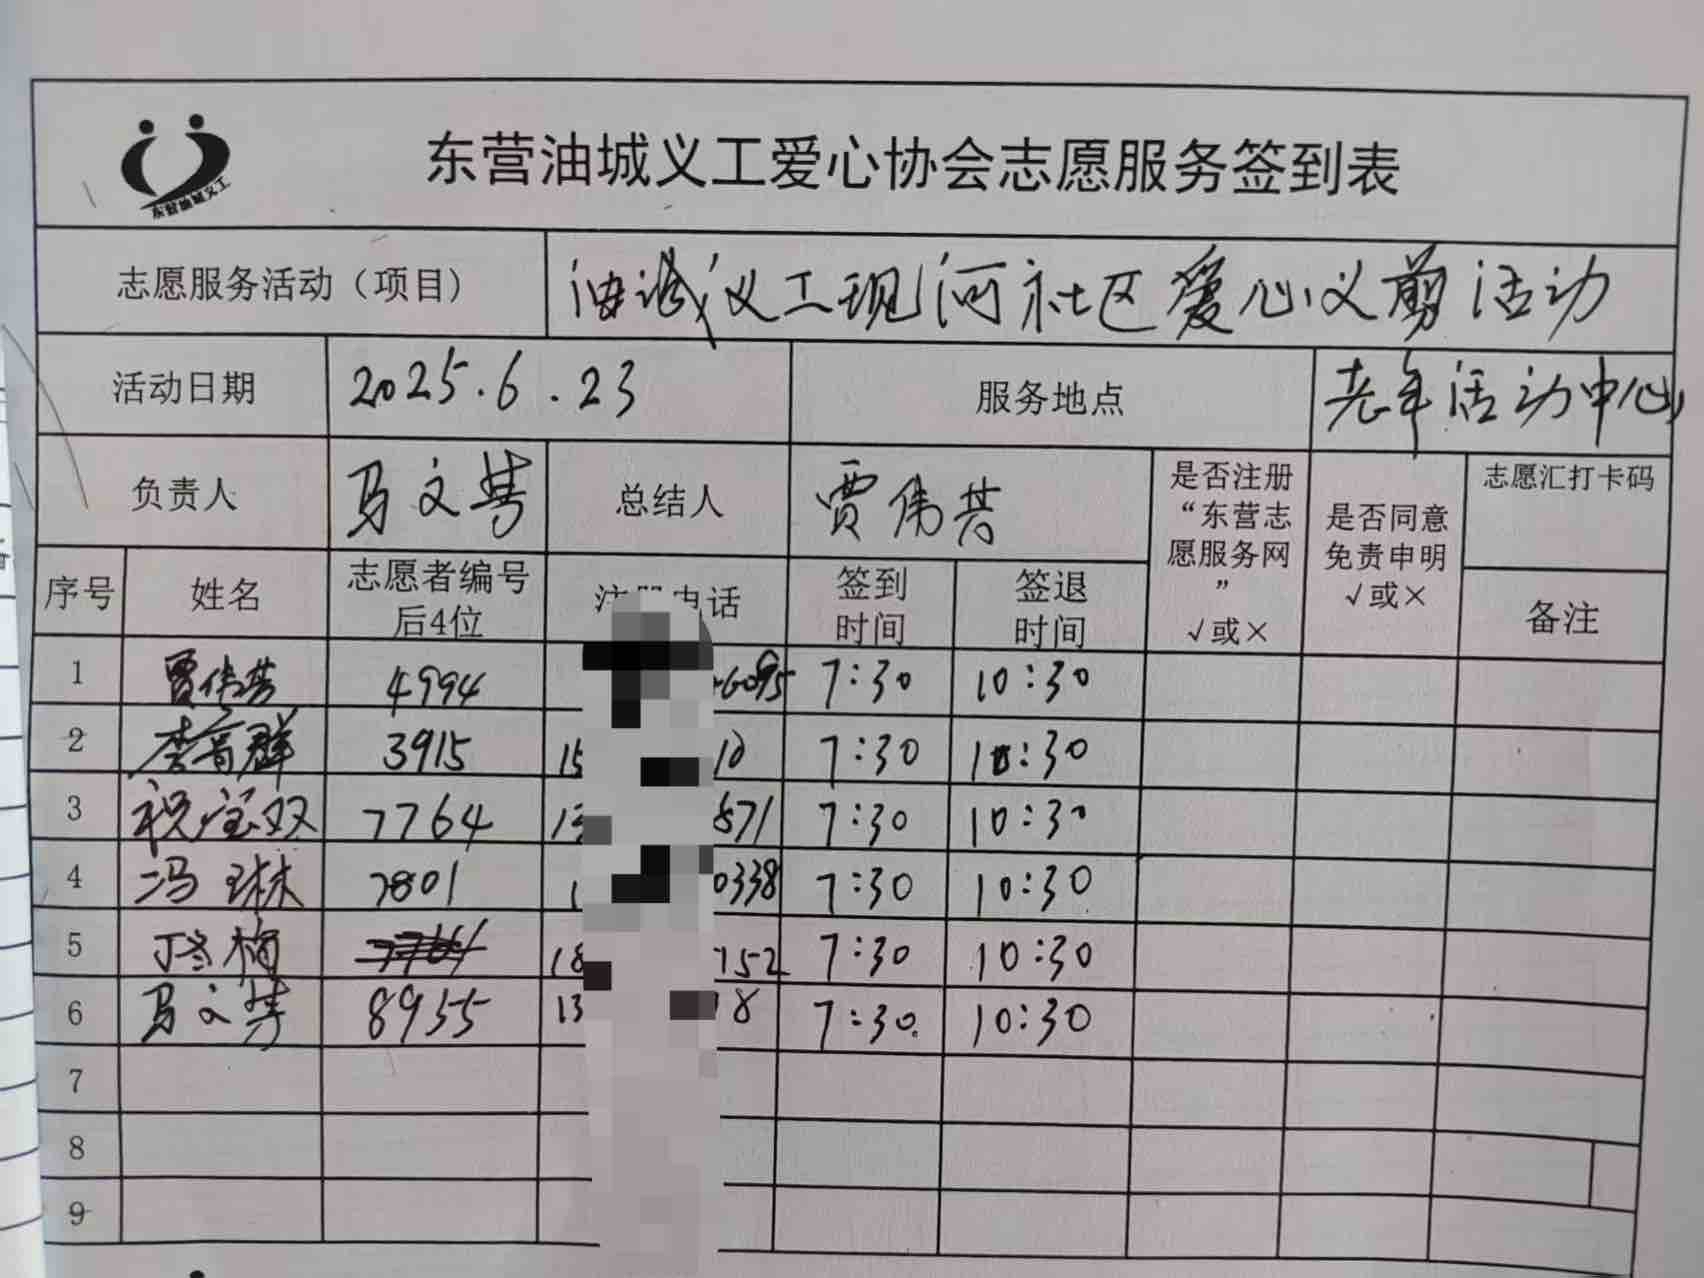 东营油城义工
东营油城义工爱心协会志愿服务签到表
志愿服务活动（项目） 油城义工现河社区爱心义剪活动
活动日期 2025.6.23 服务地点 老年活动中心
负责人 马文芳 总结人 贾伟芸 是否注册“东营志愿服务网” √或× 是否同意免责申明 √或× 志愿汇打卡码
序号 姓名 志愿者编号后4位 电话 签到时间 签退时间 备注
1 贾伟芸 4994 6095 7:30 10:30
2 李育群 3915 15 10 7:30 10:30
3 祝宝双 7764 13 871 7:30 10:30
4 冯琳 7801 1 0338 7:30 10:30
5 丁冬梅 18 752 7:30 10:30
6 马文芳 8955 13 8 7:30 10:30
7
8
9